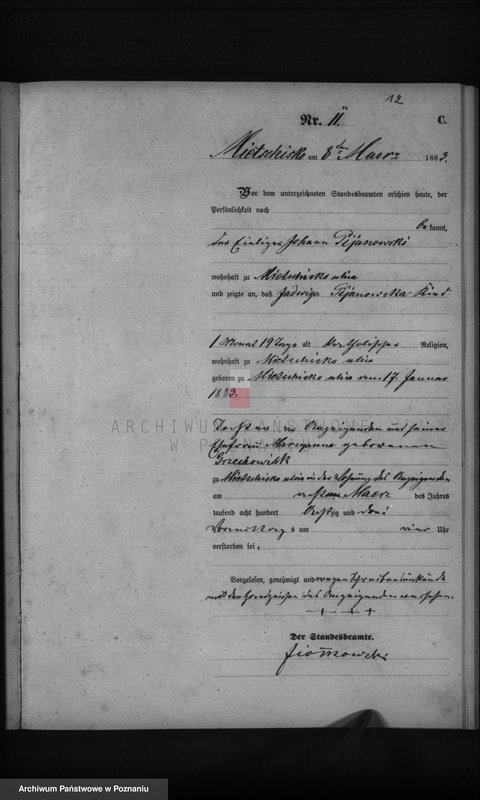 12
Nr. 11.
C.
Mietschisko am 8ten Maerz 1883.
Vor dem unterzeichneten Standesbeamten erschien heute, der
Persönlichkeit nach
be kannt,
der Johann Pijanowski
wohnhaft zu Mietschisko
und zeigte an, daß Jadwiga Pijanowska Kind
1 Monat 19 Tage alt katholischer Religion,
wohnhaft zu Mietschisko
geboren zu Mietschisko am 17. Januar
1883.
Tochter des Anzeigenden und seiner
Ehefrau Marianna geborenen
ARCHIWUM PAŃSTWOWE
W POZNANIU
zu Mietschisko in der Wohnung des Anzeigenden
am achten Maerz des Jahres
tausend acht hundert achtzig und drei
Vormittags um vier Uhr
verstorben sei.
Vorgelesen, genehmigt und wegen Schreibensunkunde
mit den Handzeichen des Anzeigenden versehen.
+ + +
Der Standesbeamte.
Archiwum Państwowe w Poznaniu